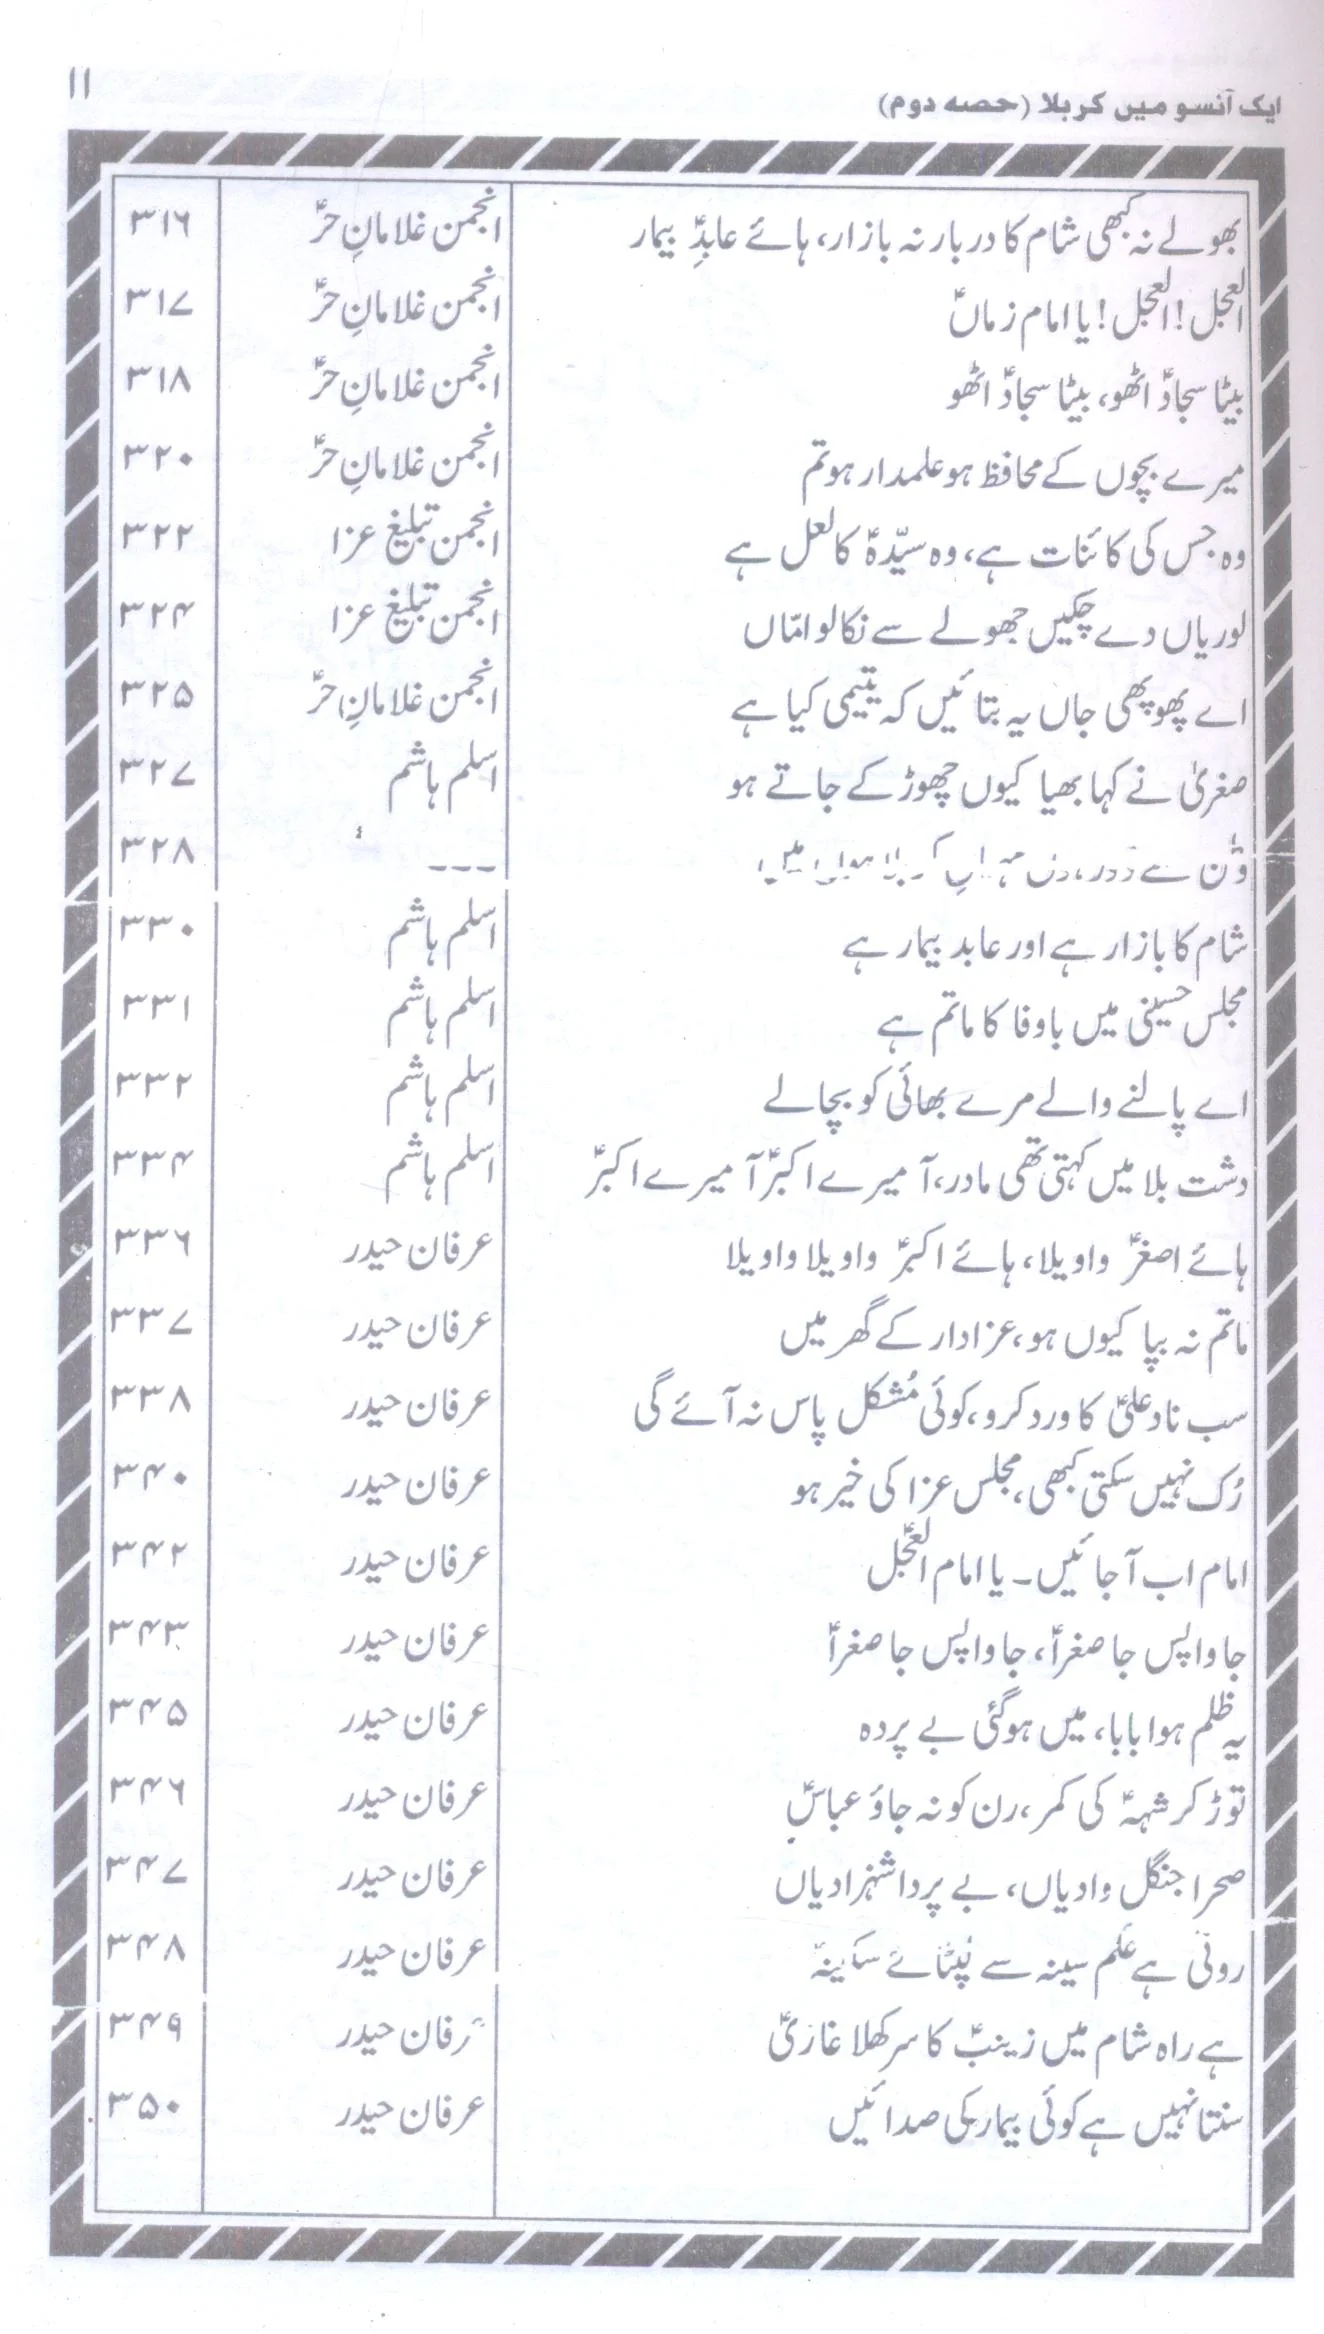 ایک آنسو میں کربلا (حصہ دوم) ۱۱
بھولے نہ کبھی شام کا دربار نہ بازار، ہائے عابدِؑ بیمار انجمن غلامانِ حرؑ ۳۱۶
العجل! العجل! یا امام زماںؑ انجمن غلامانِ حرؑ ۳۱۷
بیٹا سجادؑ اٹھو، بیٹا سجادؑ اٹھو انجمن غلامانِ حرؑ ۳۱۸
میرے بچوں کے محافظ ہو علمدار ہو تم انجمن غلامانِ حرؑ ۳۲۰
وہ جس کی کائنات ہے، وہ سیّدہؑ کا لعل ہے انجمن تبلیغ عزا ۳۲۲
لوریاں دے چکیں جھولے سے نکالو امّاں انجمن تبلیغ عزا ۳۲۴
اے پھوپھی جاں یہ بتائیں کہ یتیمی کیا ہے انجمن غلامانِ حرؑ ۳۲۵
صغریٰ نے کہا بھیا کیوں چھوڑ کے جاتے ہو اسلم ہاشم ۳۲۷
سے کربلا میں --- ۳۲۸
شام کا بازار ہے اور عابد بیمار ہے اسلم ہاشم ۳۳۰
مجلس حسینی میں باوفا کا ماتم ہے اسلم ہاشم ۳۳۱
اے پالنے والے مرے بھائی کو بچالے اسلم ہاشم ۳۳۲
دشت بلا میں کہتی تھی مادر، آ میرے اکبرؑ آ میرے اکبرؑ اسلم ہاشم ۳۳۴
ہائے اصغرؑ واویلا، ہائے اکبرؑ واویلا واویلا عرفان حیدر ۳۳۶
ماتم نہ بپا کیوں ہو، عزادار کے گھر میں عرفان حیدر ۳۳۷
سب ناد علیؑ کا ورد کرو، کوئی مُشکل پاس نہ آئے گی عرفان حیدر ۳۳۸
رُک نہیں سکتی کبھی، مجلس عزا کی خیر ہو عرفان حیدر ۳۴۰
امام اب آجائیں۔ یا امام العجلؑ عرفان حیدر ۳۴۲
جا واپس جا صغراؑ، جا واپس جا صغراؑ عرفان حیدر ۳۴۳
یہ ظلم ہوا بابا، میں ہوگئی بے پردہ عرفان حیدر ۳۴۵
توڑ کر شہہؑ کی کمر، رن کو نہ جاؤ عباسؑ عرفان حیدر ۳۴۶
صحرا جنگل وادیاں، بے پردا شہزادیاں عرفان حیدر ۳۴۷
روتی ہے عَلم سینہ سے لپٹائے سکینہؑ عرفان حیدر ۳۴۸
ہے راہ شام میں زینبؑ کا سر کھلا غازیؑ عرفان حیدر ۳۴۹
سنتا نہیں ہے کوئی بیمار کی صدائیں عرفان حیدر ۳۵۰